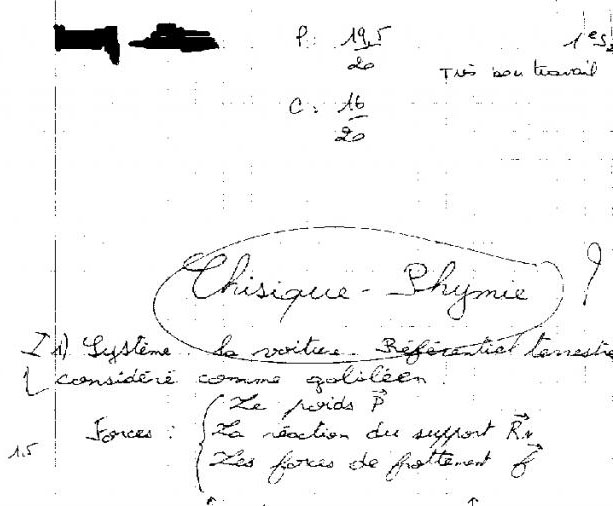 P: 19,5/20
1eS2
Très bon travail
C: 16/20
Chisique - Phymie
?
I 1) Système : la voiture. Référentiel terrestre
1 considéré comme galiléen.
Le poids P⃗
Forces : La réaction du support R⃗N
1.5 Les forces de frottement f⃗